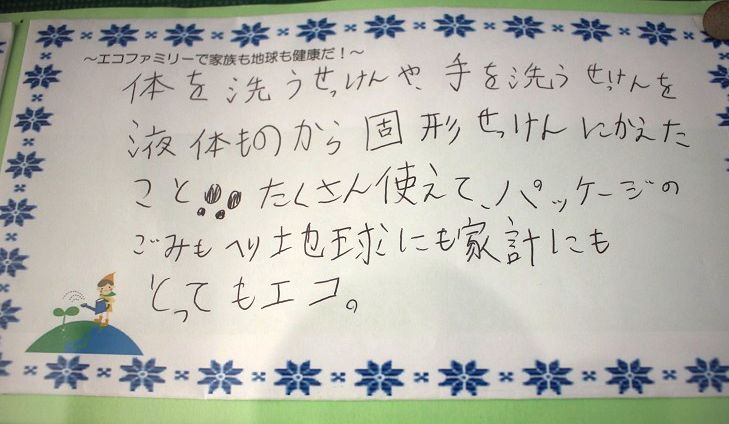 ～エコファミリーで家族も地球も健康だ！～
体を洗うせっけんや、手を洗うせっけんを
液体ものから固形せっけんにかえた
こと!!! たくさん使えて、パッケージの
ごみもへり地球にも家計にも
とってもエコ。